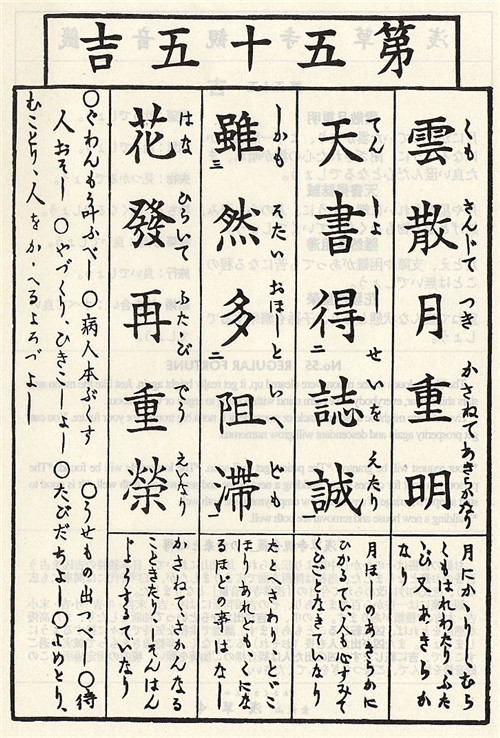 第五十五吉
雲散月重明
くも さんじて つき かさねてあきらかなり
月にかゝりしむら
くもはれわたりふた
あきらか
なり
天書得誌誠
てんしよ せいを えたり
月ほしのあきらかに
ひかるてい人も心すみて
なきていなり
雖然多阻滞
しかも そたい おほしといへども
たとへさわりとどこ
ほりあれどもくにな
るほどの事はなし
花發再重榮
はな ひらいて ふたゝび えなり
かさねてさかんなる
こときたりしそんはん
じようするていなり
○ぐわんもう叶ふべし ○病人本ぶくす ○うせもの出つべし ○待
人おそし ○やづくり、ひきこしよし ○たびだちよし ○よめとり、
むことり、人をかゝへるよろづよし